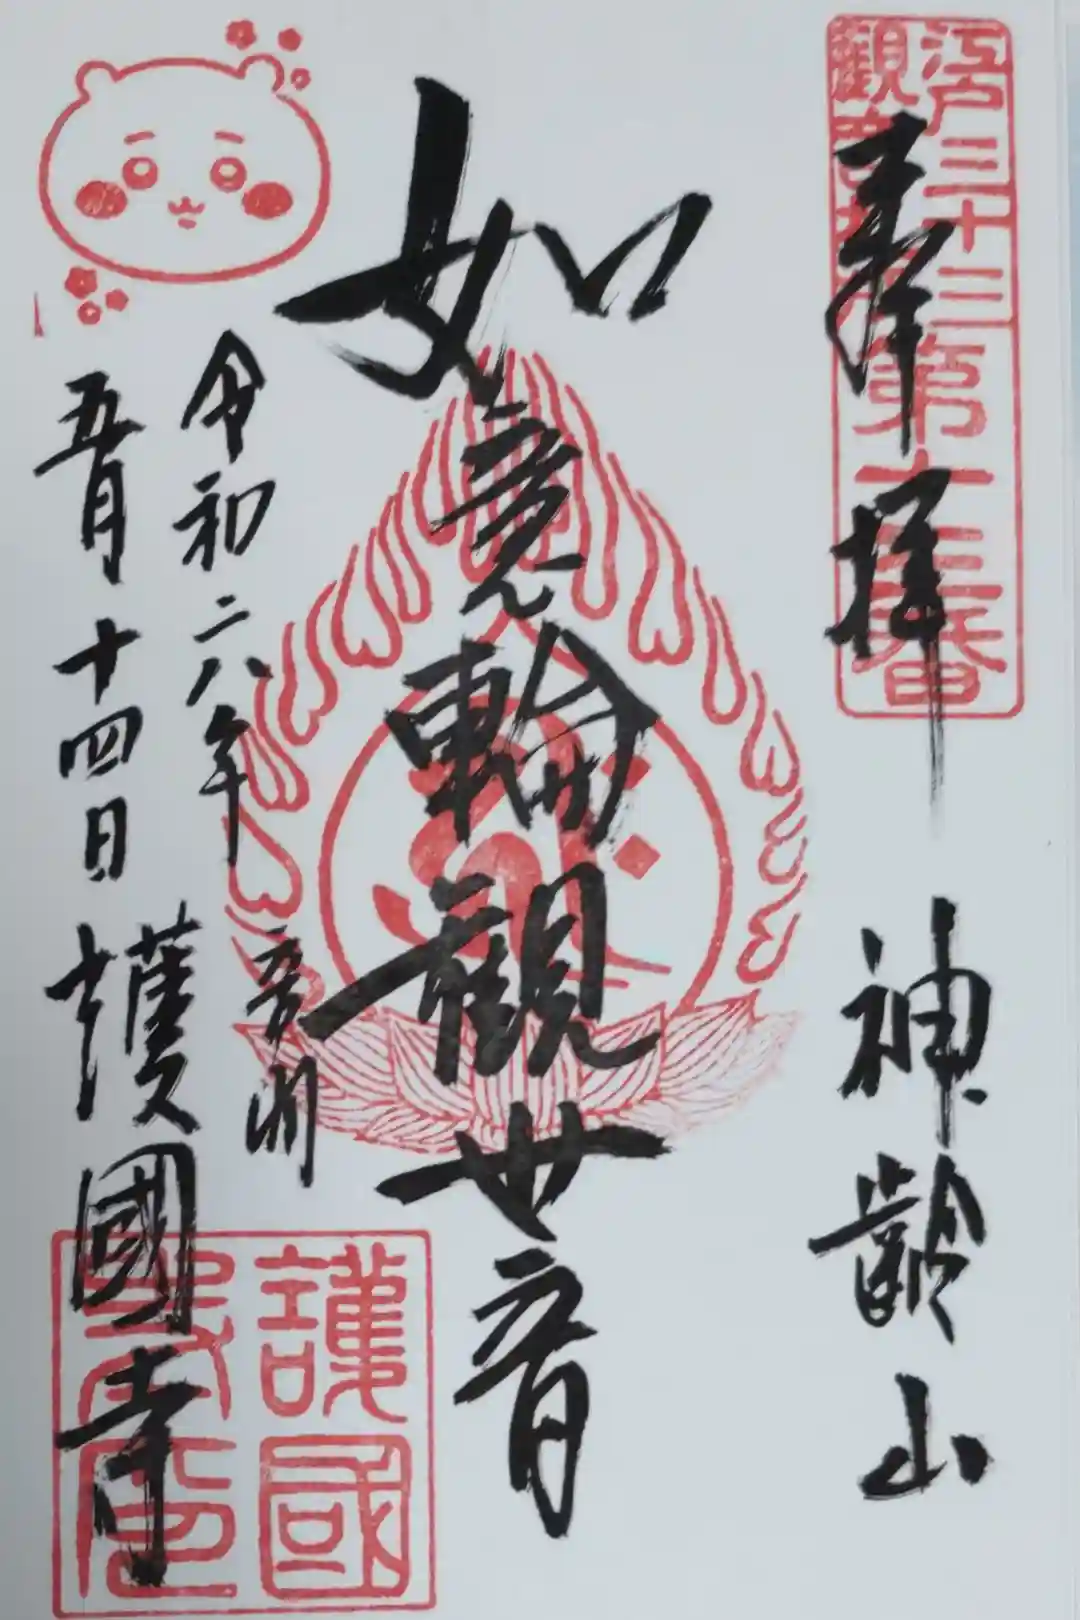 江戸三十三
觀音札所
第十三番
奉拝
神齢山
如意輪觀世音
令和六年
五月十四日
音羽
護國寺
護國
寺印